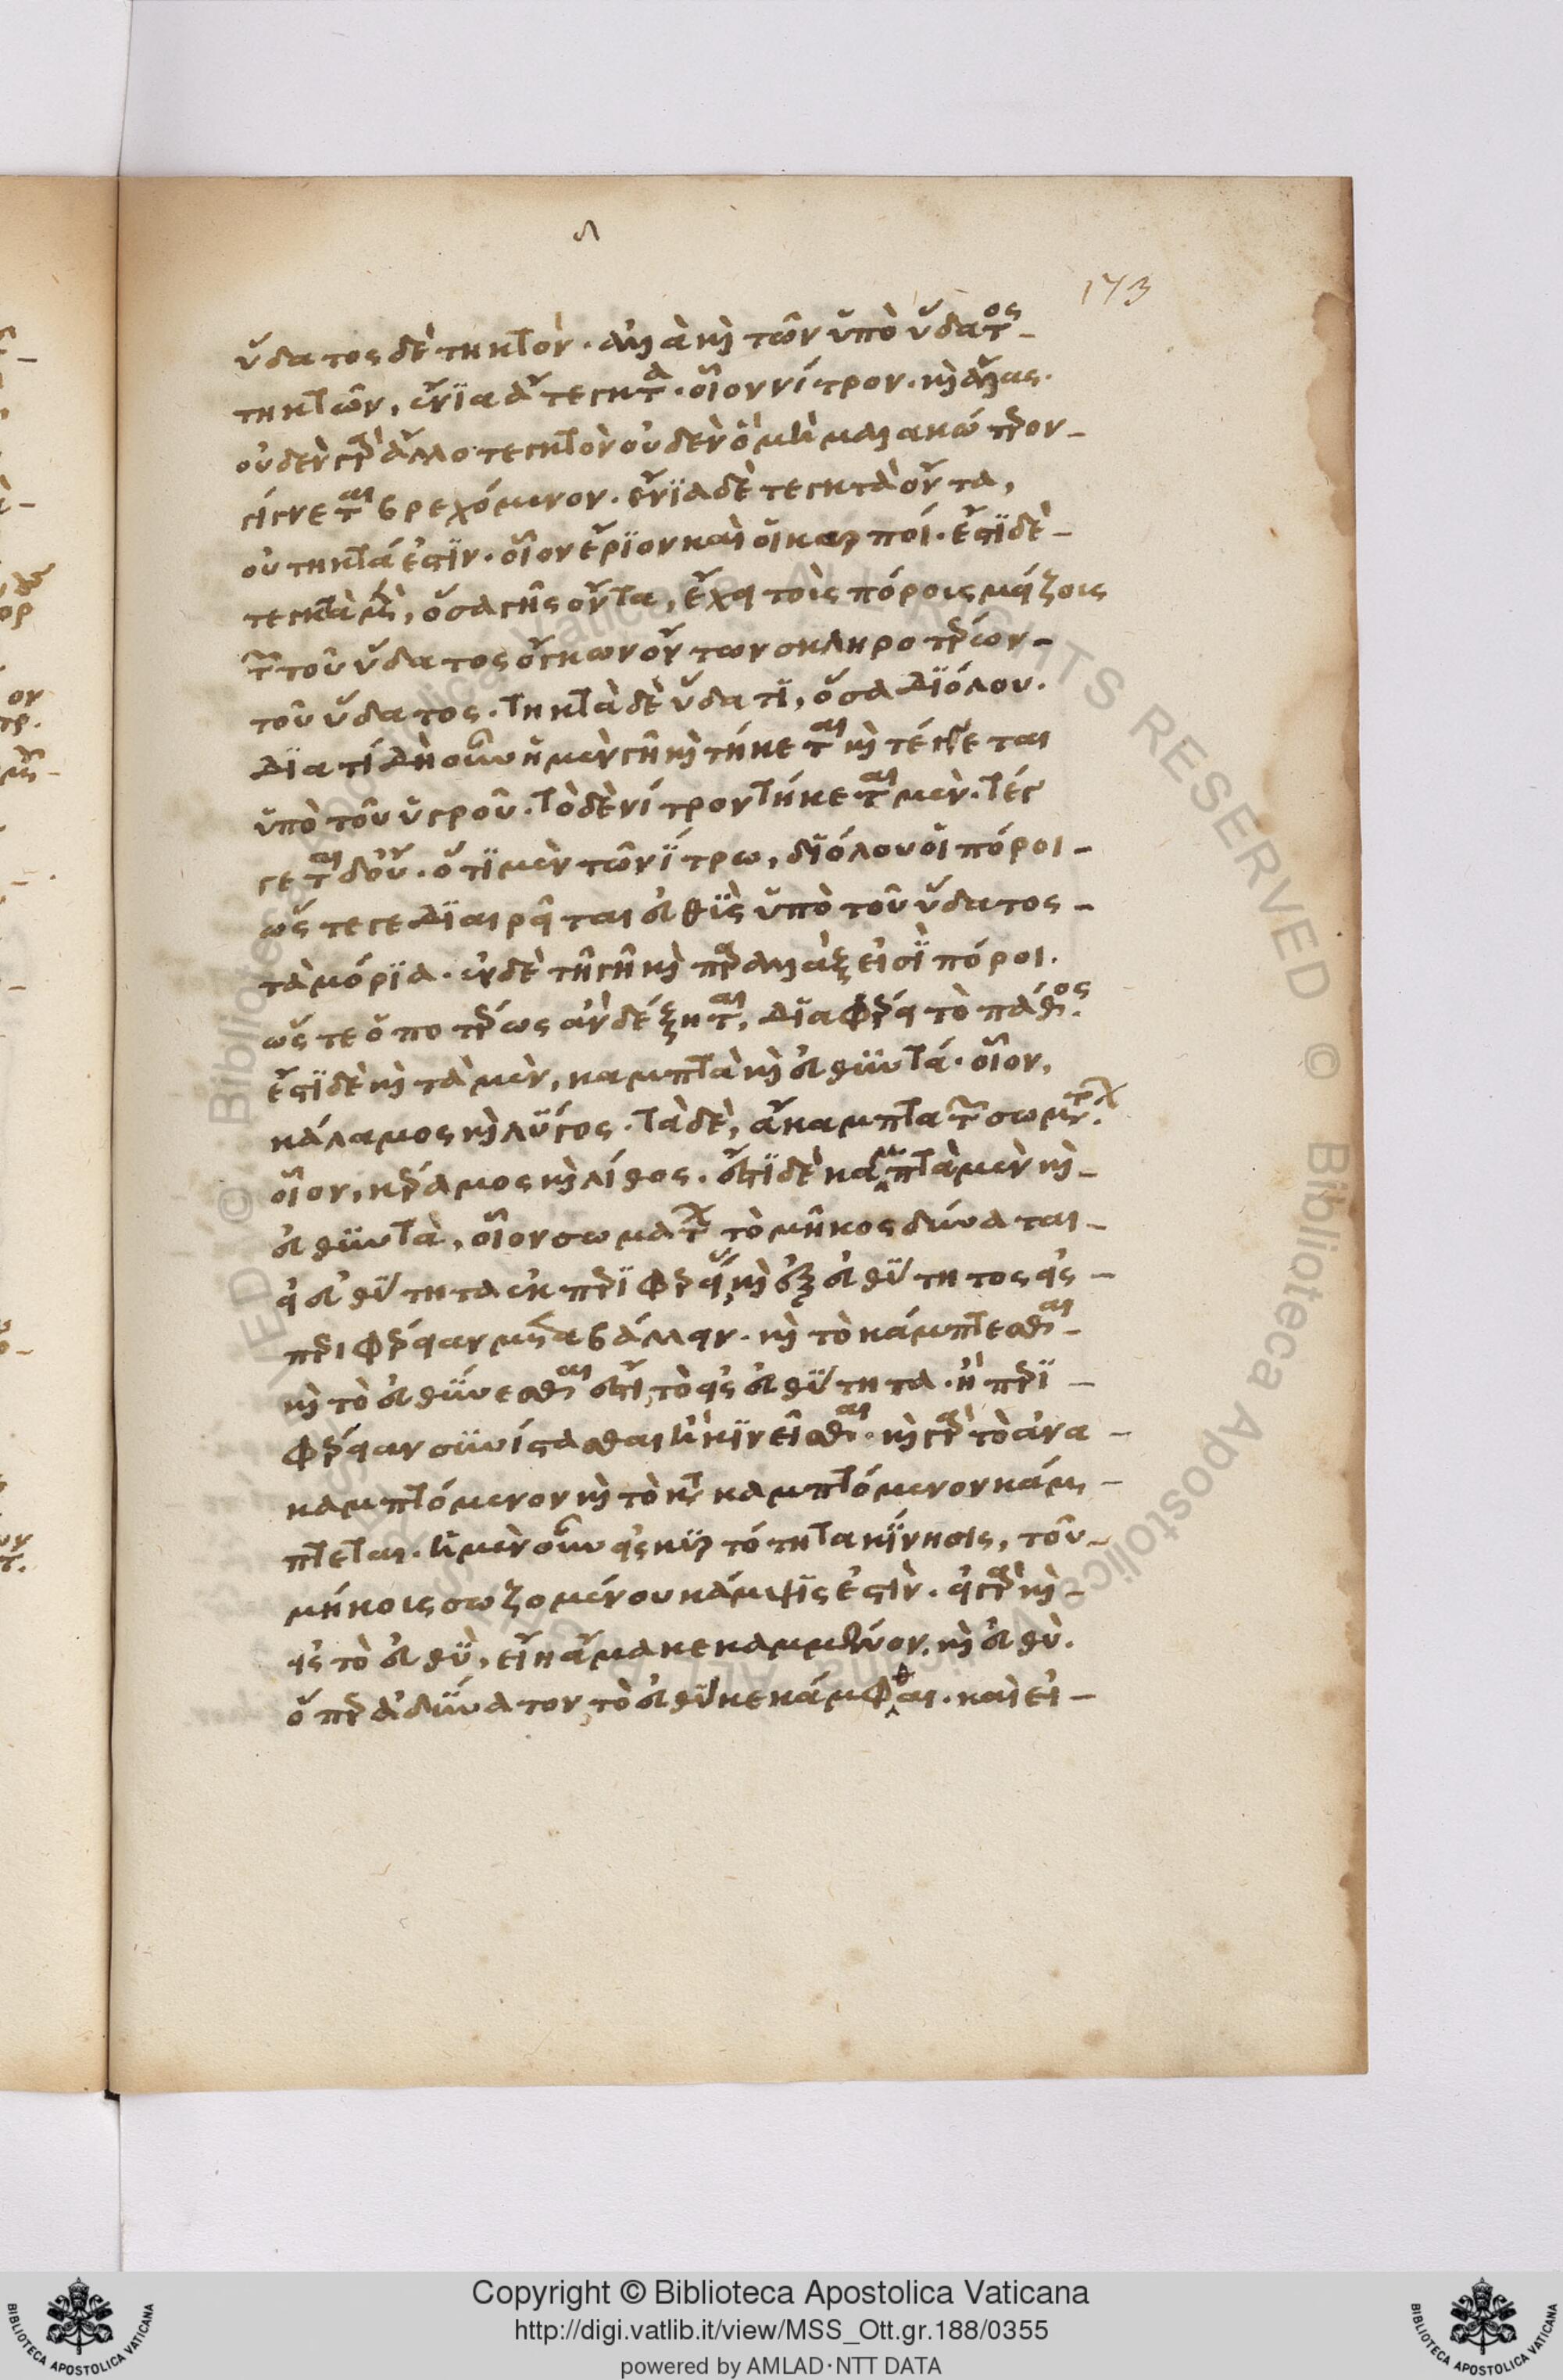 173
ὕδατος δὲ τηκτόν. ἀλλὰ καὶ τῶν ὑπὸ ὕδατος
τηκτῶν, ἔνϊα ἄτεγκτα. οἷον νίτρον. καὶ ἅλας.
οὐδὲν γὰρ ἄλλο τεγκτὸν οὐδὲν ὃ μὴ μαλακώτερον
γίγνεται βρεχόμενον. ἔνϊα δὲ τεγκτὰ ὄντα,
οὐ τηκτά ἐστϊν. οἷον ἔρϊον καὶ οἱ καρποί. ἔστϊ δὲ
τεγκτὰ μὲν, ὅσα γῆς ὄντα, ἔχει τοὺς πόρους μείζους
τῶν τοῦ ὕδατος ὄγκων ὄντων σκληροτέρων
τοῦ ὕδατος. τηκτὰ δὲ ὕδατϊ, ὅσα δϊόλου.
Δϊατί δὴ οὖν ἡ μὲν γῆ καὶ τήκεται καὶ τέγγεται
ὑπὸ τοῦ ὑγροῦ. τὸ δὲ νίτρον τήκεται μὲν. τέγ
γεται δ' οὔ. ὅτϊ μὲν τῶ νϊτρω, δϊόλου οἱ πόροι
ὥστε γε δϊαιρεῖται εὐθὺς ὑπὸ τοῦ ὕδατος
τὰ μόρϊα. ἐν δὲ τῆ γῆ καὶ παραλλὰξ εἰσϊ πόροι.
ὥστε ὁποτέρως ἂν δέξηται, δϊαφέρει τὸ πάθος.
ἔστϊ δὲ καὶ τὰ μὲν, καμπτὰ καὶ εὐθυντά. οἷον,
κάλαμος καὶ λύγος. τὰ δὲ, ἄκαμπτα τῶν σωμάτων.
οἷον, κέραμος καὶ λίθος. ἔστϊ δὲ καμπτὰ μὲν καὶ
εὐθυντὰ, οἷον σωμάτων τὸ μῆκος δύναται
εἰ εὐθύτητα ἐκ περϊφερείας, καὶ ἐξ εὐθύτητος εἰς
περιφέρειαν μεταβάλλειν. καὶ τὸ κάμπτεσθαι
καὶ τὸ εὐθύνεσθαι ἐστὶ, τὸ εἰς εὐθύτητα. ἢ περϊ
φέρειαν συνίστασθαι ἢ κϊνεῖσθαι. καὶ γὰρ τὸ ἀνα
καμπτόμενον καὶ τὸ κατακαμπτόμενον κάμ
πτεται. ἡ μὲν οὖν εἰς κυρτότητα κίνησις, τοῦ
μήκους σωζομένου κάμψϊς ἐστὶν. εἰ γὰρ καὶ
εἰς τὸ εὐθὺ, εἴη ἅμα κεκαμμένον. καὶ εὐθὺ.
ὅπερ ἀδύνατον, τὸ εὐθὺ κεκάμφθαι. καὶ εἰ
Copyright © Biblioteca Apostolica Vaticana
http://digi.vatlib.it/view/MSS_Ott.gr.188/0355
powered by AMLAD·NTT DATA